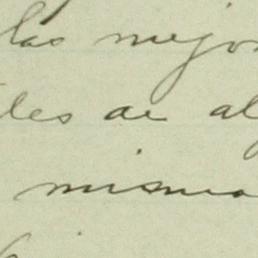 las mejor
les de al
misma